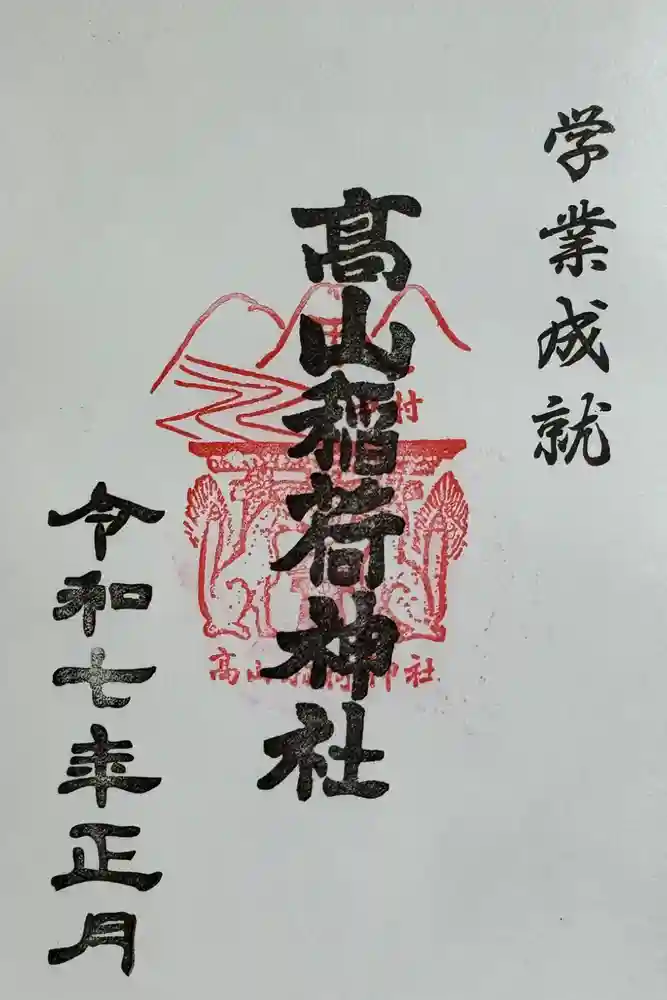 学業成就
高山稲荷神社
村
高山稲荷神社
令和七年正月